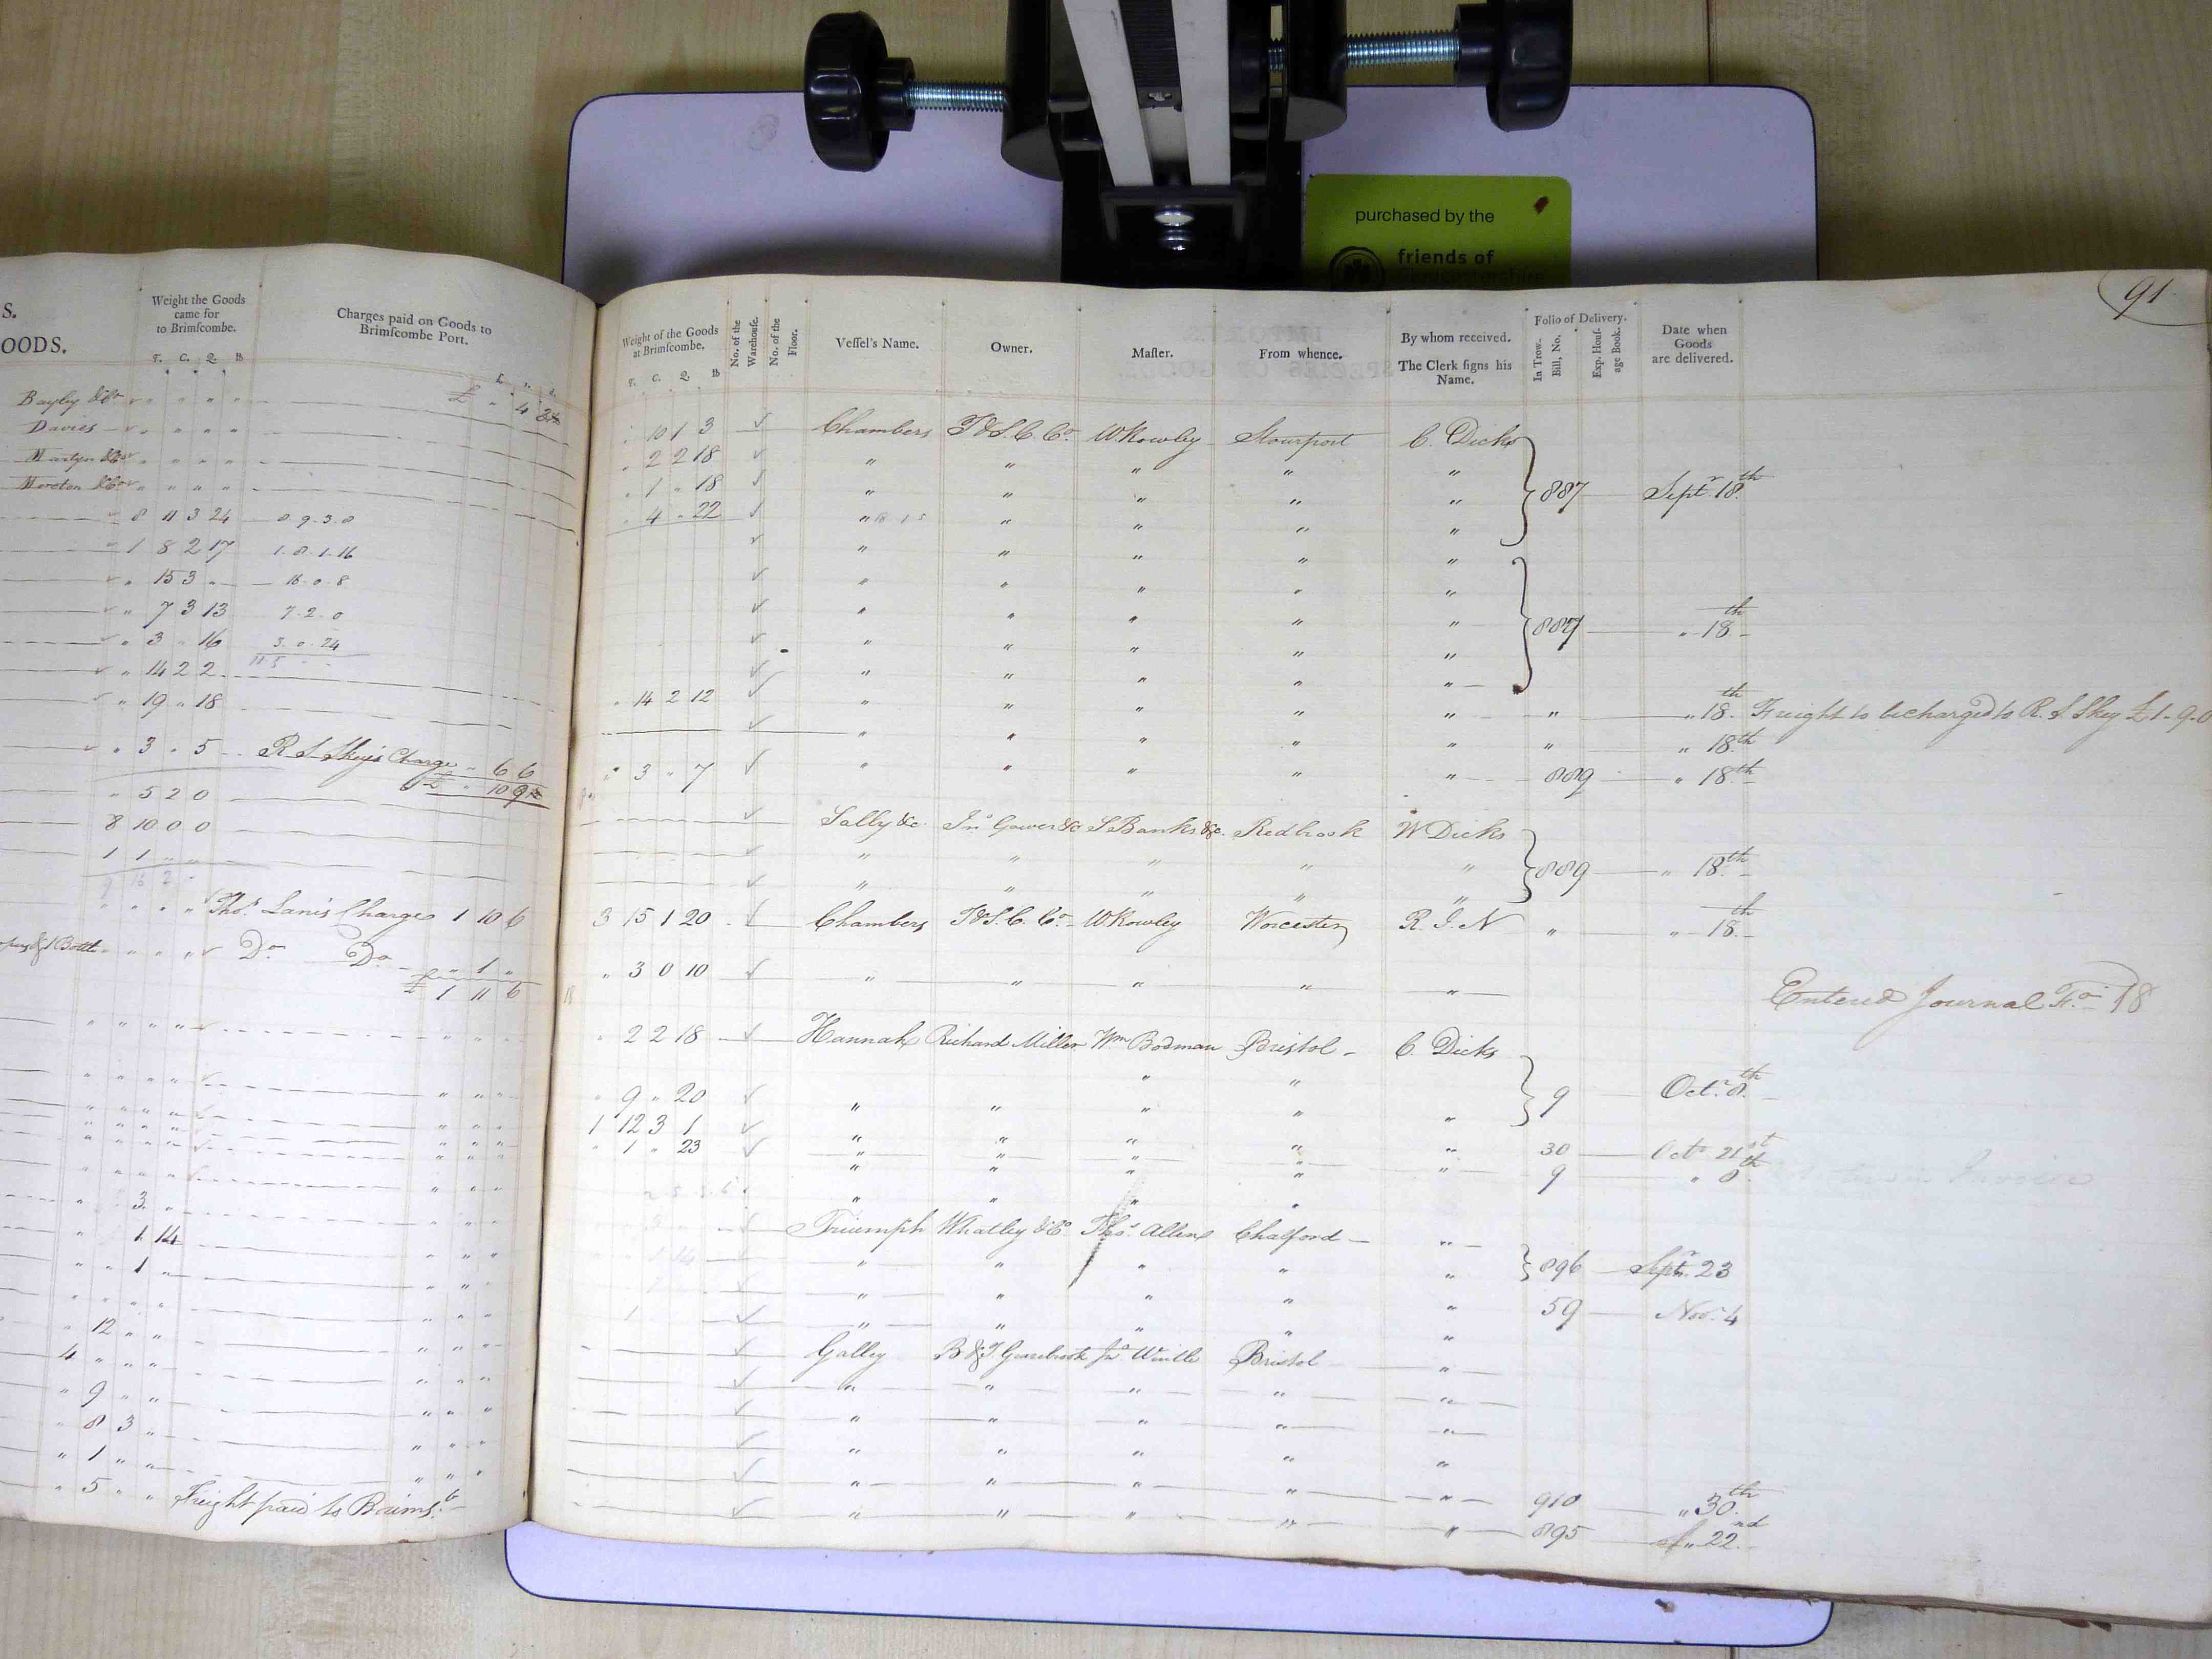 purchased by the
friends of
91
S.
OODS.
Weight the Goods
came for
to Brimſcombe.
T. C. Q. lb
Charges paid on Goods to
Brimſcombe Port.
Bayly &Co " " " " £ " 4
Davies " " " "
Martyn &Co " " " "
Moreton &Co " " " "
8 11 3 24 8.9.3.0
1 8 2 17 1.8.1.16
" 15 3 " 16.0.8
" 7 3 13 7.2.0
" 3 " 16 3.0.24
" 14 2 2 11 5
" 19 " 18
" 3 " 5 R S Skey's Charge " 6 6
" 5 2 0
8 10 0 0
1 1 " "
9 16 2 "
" " " " Thos. Lane's Charges 1 10 6
& 1 Bottle " " " " Do Do " 1 "
£ 1 11 6
" 3 "
" 1 14
" " 1 "
" 12 " "
4 " " "
" 9 " "
" 8 3 "
" 1 " "
" 5 " " Freight paid to Brims.b
Weight of the Goods
at Brimſcombe.
T. C. Q. lb
No. of the
Warehouſe.
No. of the
Floor.
Veſſel's Name.
Owner.
Maſter.
From whence.
By whom received.
The Clerk ſigns his
Name.
Folio of Delivery.
In Trow.
Bill, No.
Exp. Houſ-
age Book.
Date when
Goods
are delivered.
" 10 1 3 Chambers T&S.C.Co. W Rowley Stourport C. Dicks
" 2 2 18 " " " " "
" 1 " 18 " " " " " 887 Septr. 18th
" 4 " 22 " " " " "
" " " " "
" " " " "
" " " " " 887 " 18th
" " " " "
" " " " "
" 14 2 12 " " " " " " " 18th Freight to be charged to R. S Skey £1-9-0
" " " " " " " 18th
" 3 " 7 " " " " " 889 " 18th
Sally &c Jno. Gower &c S Banks &c. Redbrook W Dicks
" " " " " 889 " 18th
" " " " "
3 15 1 20 Chambers T&S.C.Co. W Rowley Worcester R. I. N " " 18th
" 3 0 10 " " " " "
Entered Journal Fo. 18
" 2 2 18 Hannah Richard Miller Wm Bodman Bristol C. Dicks
" 9 " 20 " " " " " 9 Octr. 8th
1 12 3 1 " " " " "
" 1 " 23 " " " " " 30 Octr 21st
" " " " " 9 " 8th
Triumph Whatley &Co Thos. Allen Chalford "
" " " " " 896 Septr. 23
" " " " "
1 " " " " " 59 Nov. 4
Galley B &T Grazebrook Jno. Wintle Bristol "
" " " " "
" " " " "
" " " " "
" " " " " 910 " 30th
" " " " " 895 " 22nd